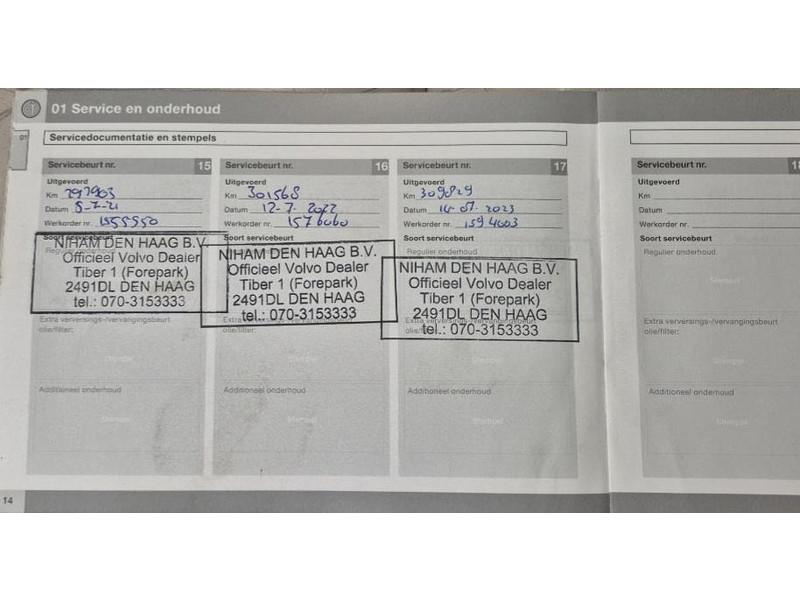 01 Service en onderhoud
01
Servicedocumentatie en stempels
Servicebeurt nr. 15
Uitgevoerd
Km 297903
Datum 5-7-21
Werkorder nr. 1555550
Soort servicebeurt
Regulier onderhoud
NIHAM DEN HAAG B.V.
Officieel Volvo Dealer
Tiber 1 (Forepark)
2491DL DEN HAAG
tel.: 070-3153333
Extra verversings-/vervangingsbeurt
olie/filter:
Additioneel onderhoud
Stempel
Servicebeurt nr. 16
Uitgevoerd
Km 301568
Datum 12-7-2022
Werkorder nr. 1576060
Soort servicebeurt
NIHAM DEN HAAG B.V.
Officieel Volvo Dealer
Tiber 1 (Forepark)
2491DL DEN HAAG
tel.: 070-3153333
Extra verversings-/vervangingsbeurt
olie/filter:
Additioneel onderhoud
Stempel
Servicebeurt nr. 17
Uitgevoerd
Km 309829
Datum 14-07-2023
Werkorder nr. 1594003
Soort servicebeurt
Regulier onderhoud
NIHAM DEN HAAG B.V.
Officieel Volvo Dealer
Tiber 1 (Forepark)
2491DL DEN HAAG
tel.: 070-3153333
Extra verversings-/vervangingsbeurt
olie/filter:
Stempel
Additioneel onderhoud
Stempel
Servicebeurt nr.
Uitgevoerd
Km
Datum
Werkorder nr.
Soort servicebeurt
Regulier onderhoud
Stempel
Extra verversings-/vervangingsbeurt
olie/filter:
Stempel
Additioneel onderhoud
Stempel
14